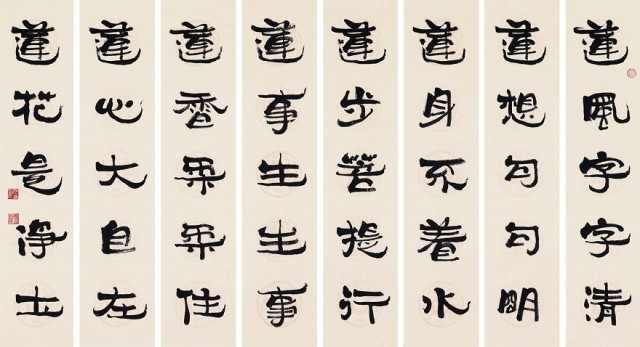 蓮風字字清
蓮想句句明
蓮身不着水
蓮步菩提行
蓮事生生事
蓮香果果住
蓮心大自在
蓮花是淨土